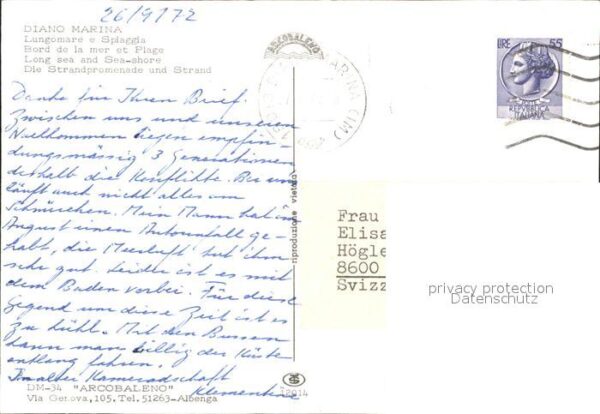 26/9/72
DIANO MARINA
Lungomare e Spiaggia
Bord de la mer et Plage
Long sea and Sea-shore
Die Strandpromenade und Strand
ARCOBALENO
LIRE 55
REPVBBLICA
ITALIANA
Danke für Ihren Brief.
Zwischen uns und unseren
liegen empfin-
dungsmässig 3 Generationen
deshalb die Konflikte. Bei uns
läuft auch nicht alles am
Schnürchen. Mein Mann hat im
August einen Autounfall ge-
habt, die Meerluft tut ihm
sehr gut. Leider ist es mit
dem Baden vorbei. Für diese
Gegend um diese Zeit ist es
zu kühl. Mit den Bussen
kann man billig der Küste
entlang fahren.
In alter Kameradschaft
Klementine
riproduzione vietata
Frau
Elisa
Högle
8600
Svizz
privacy protection
Datenschutz
DM-34 "ARCOBALENO"
Via Genova, 105. Tel. 51263-Albenga